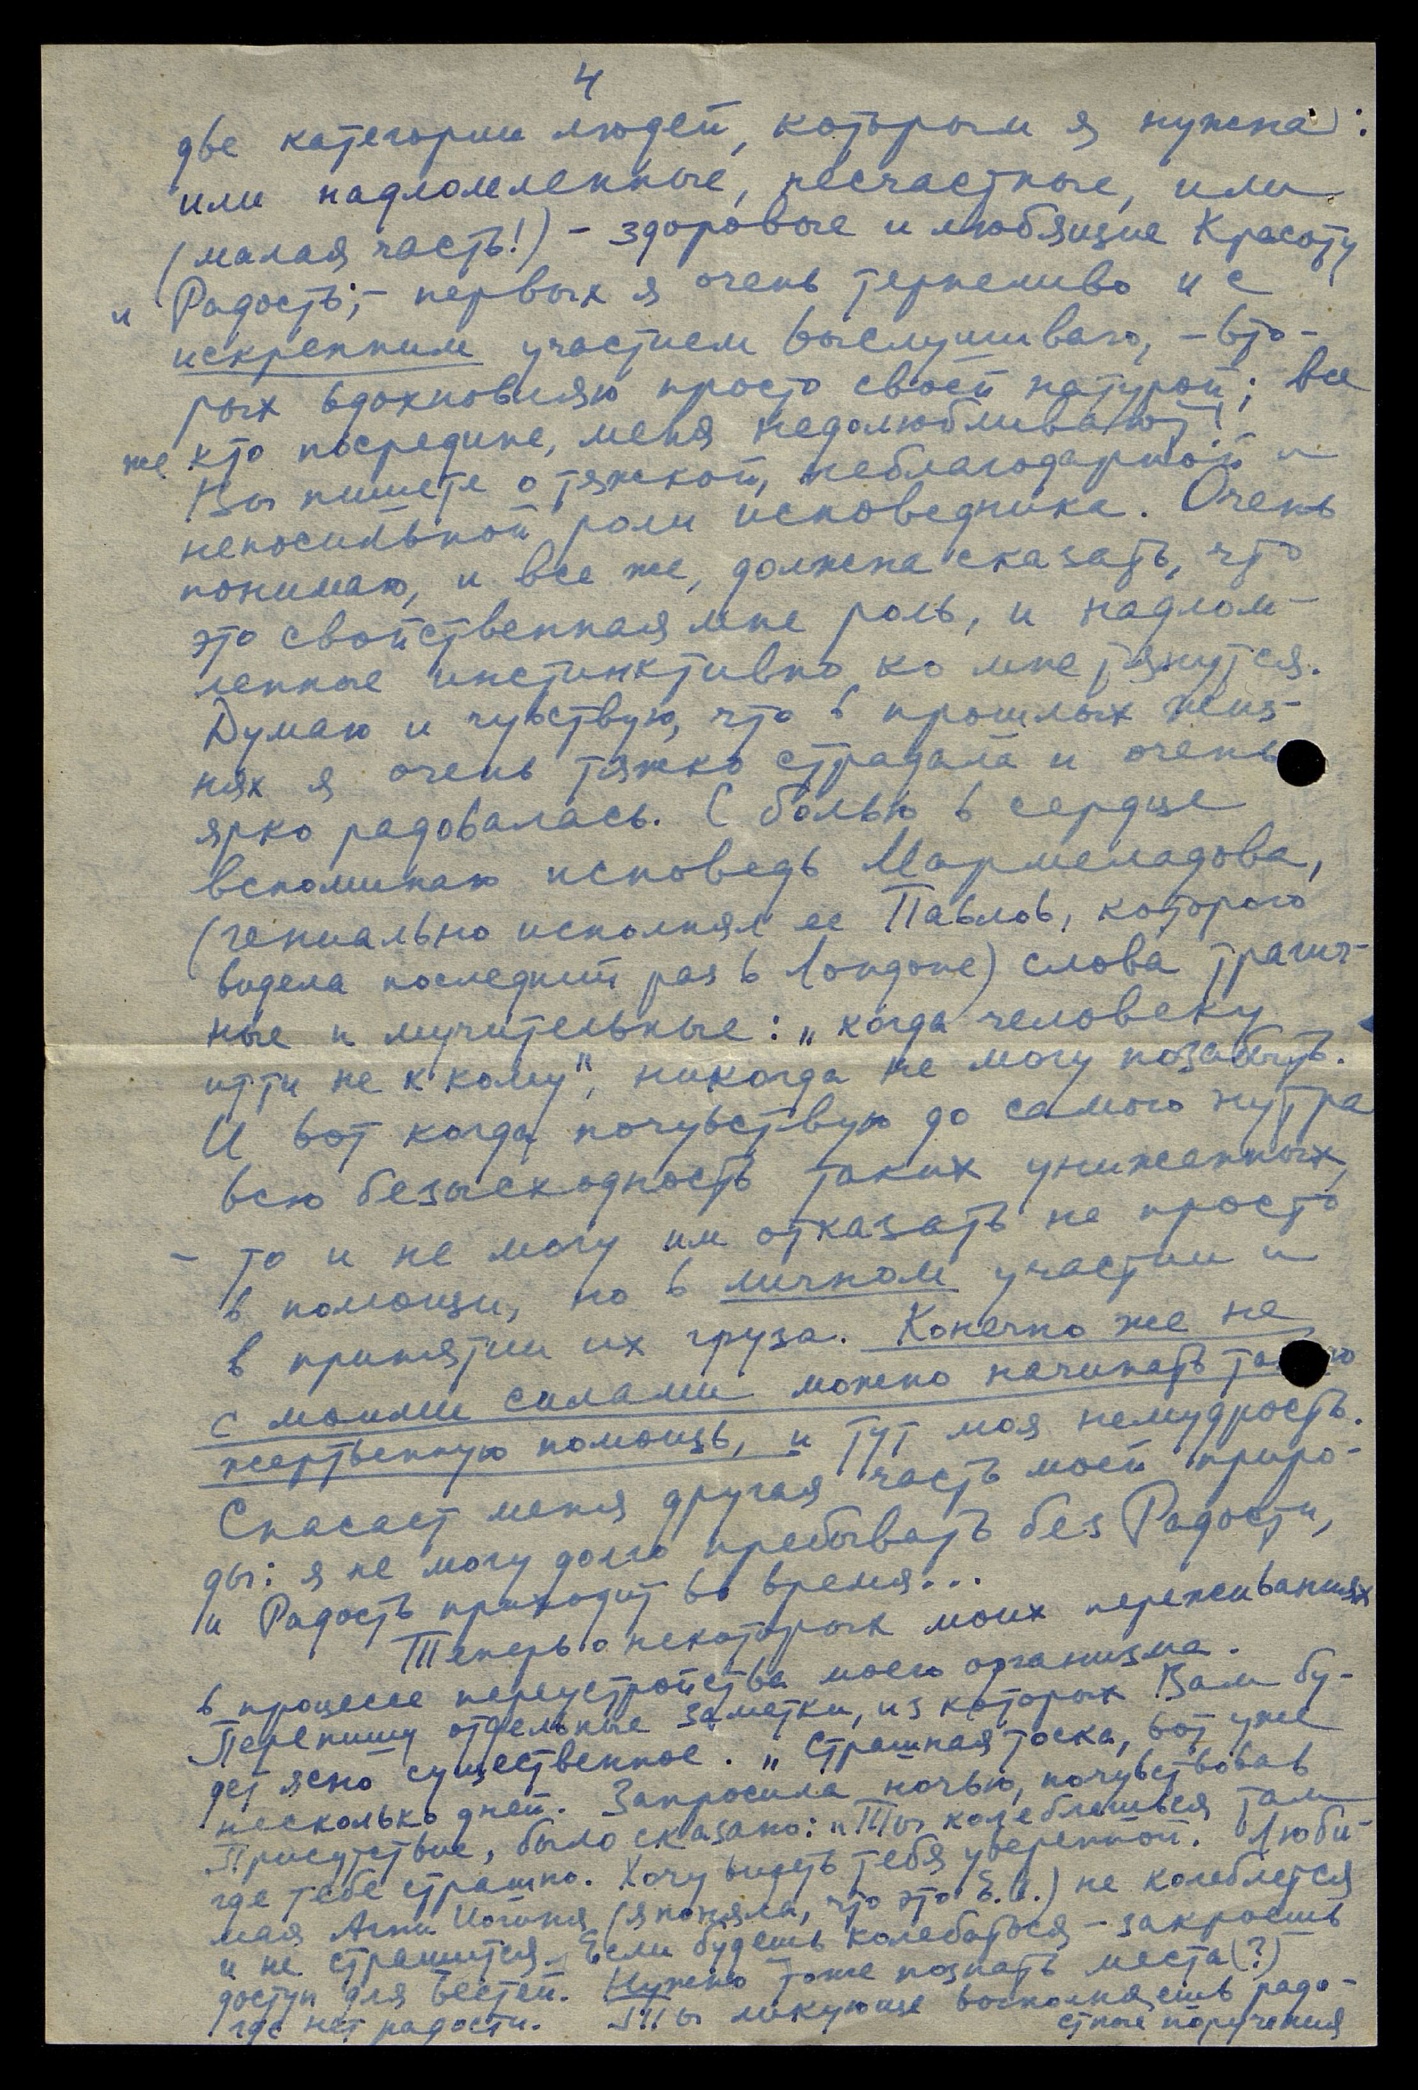 4
две категории людей, которым я нужна:
или надломленные, несчастные, или
(малая часть!) – здоровые и любящие Красоту
и Радость; – первых я очень терпеливо и с
искренним участием выслушиваю, – вто-
рых вдохновляю просто своей натурой; все
же кто посредине, меня недолюбливают!
Вы пишете о тяжкой, неблагодарной и
непосильной роли исповедника. Очень
понимаю, и все же, должна сказать, что
это свойственная мне роль, и надлом-
ленные инстинктивно ко мне тянутся.
Думаю и чувствую, что в прошлых жиз-
нях я очень тяжко страдала и очень
ярко радовалась. С болью в сердце
вспоминаю исповедь Мармеладова,
(гениально исполнял ее Павлов, которого
видела последний раз в Лондоне) слова трагич-
ные и мучительные: „когда человеку
итти не к кому", никогда не могу позабыть.
И вот когда почувствую до самого нутра
всю безысходность таких униженных,
– то и не могу им отказать не просто
в помощи, но в личном участии и
в принятии их груза. Конечно же не
с моими силами можно начинать
жертвенную помощь, и тут моя немудрость.
Спасает меня другая часть моей приро-
ды: я не могу долго пребывать без Радости,
и Радость приходит во время...
Теперь о некоторых моих переживаниях
в процессе переустройства моего организма.
Перепишу отдельные заметки, из которых Вам бу-
дет ясно существенное. „Страшная тоска, вот уже
несколько дней. Запросила ночью, почувствовав
Присутствие, было сказано: „Ты колеблешься там
где тебе страшно. Хочу видеть тебя уверенной. Люби-
мая Агни Йогиня (я поняла, что это Е.И.) не колеблется
и не страшится. Если будешь колебаться – закроешь
доступ для вестей. Нужно тоже познать места (?)
где нет радости. Ты ликующе восполняешь радо-
стные поручения